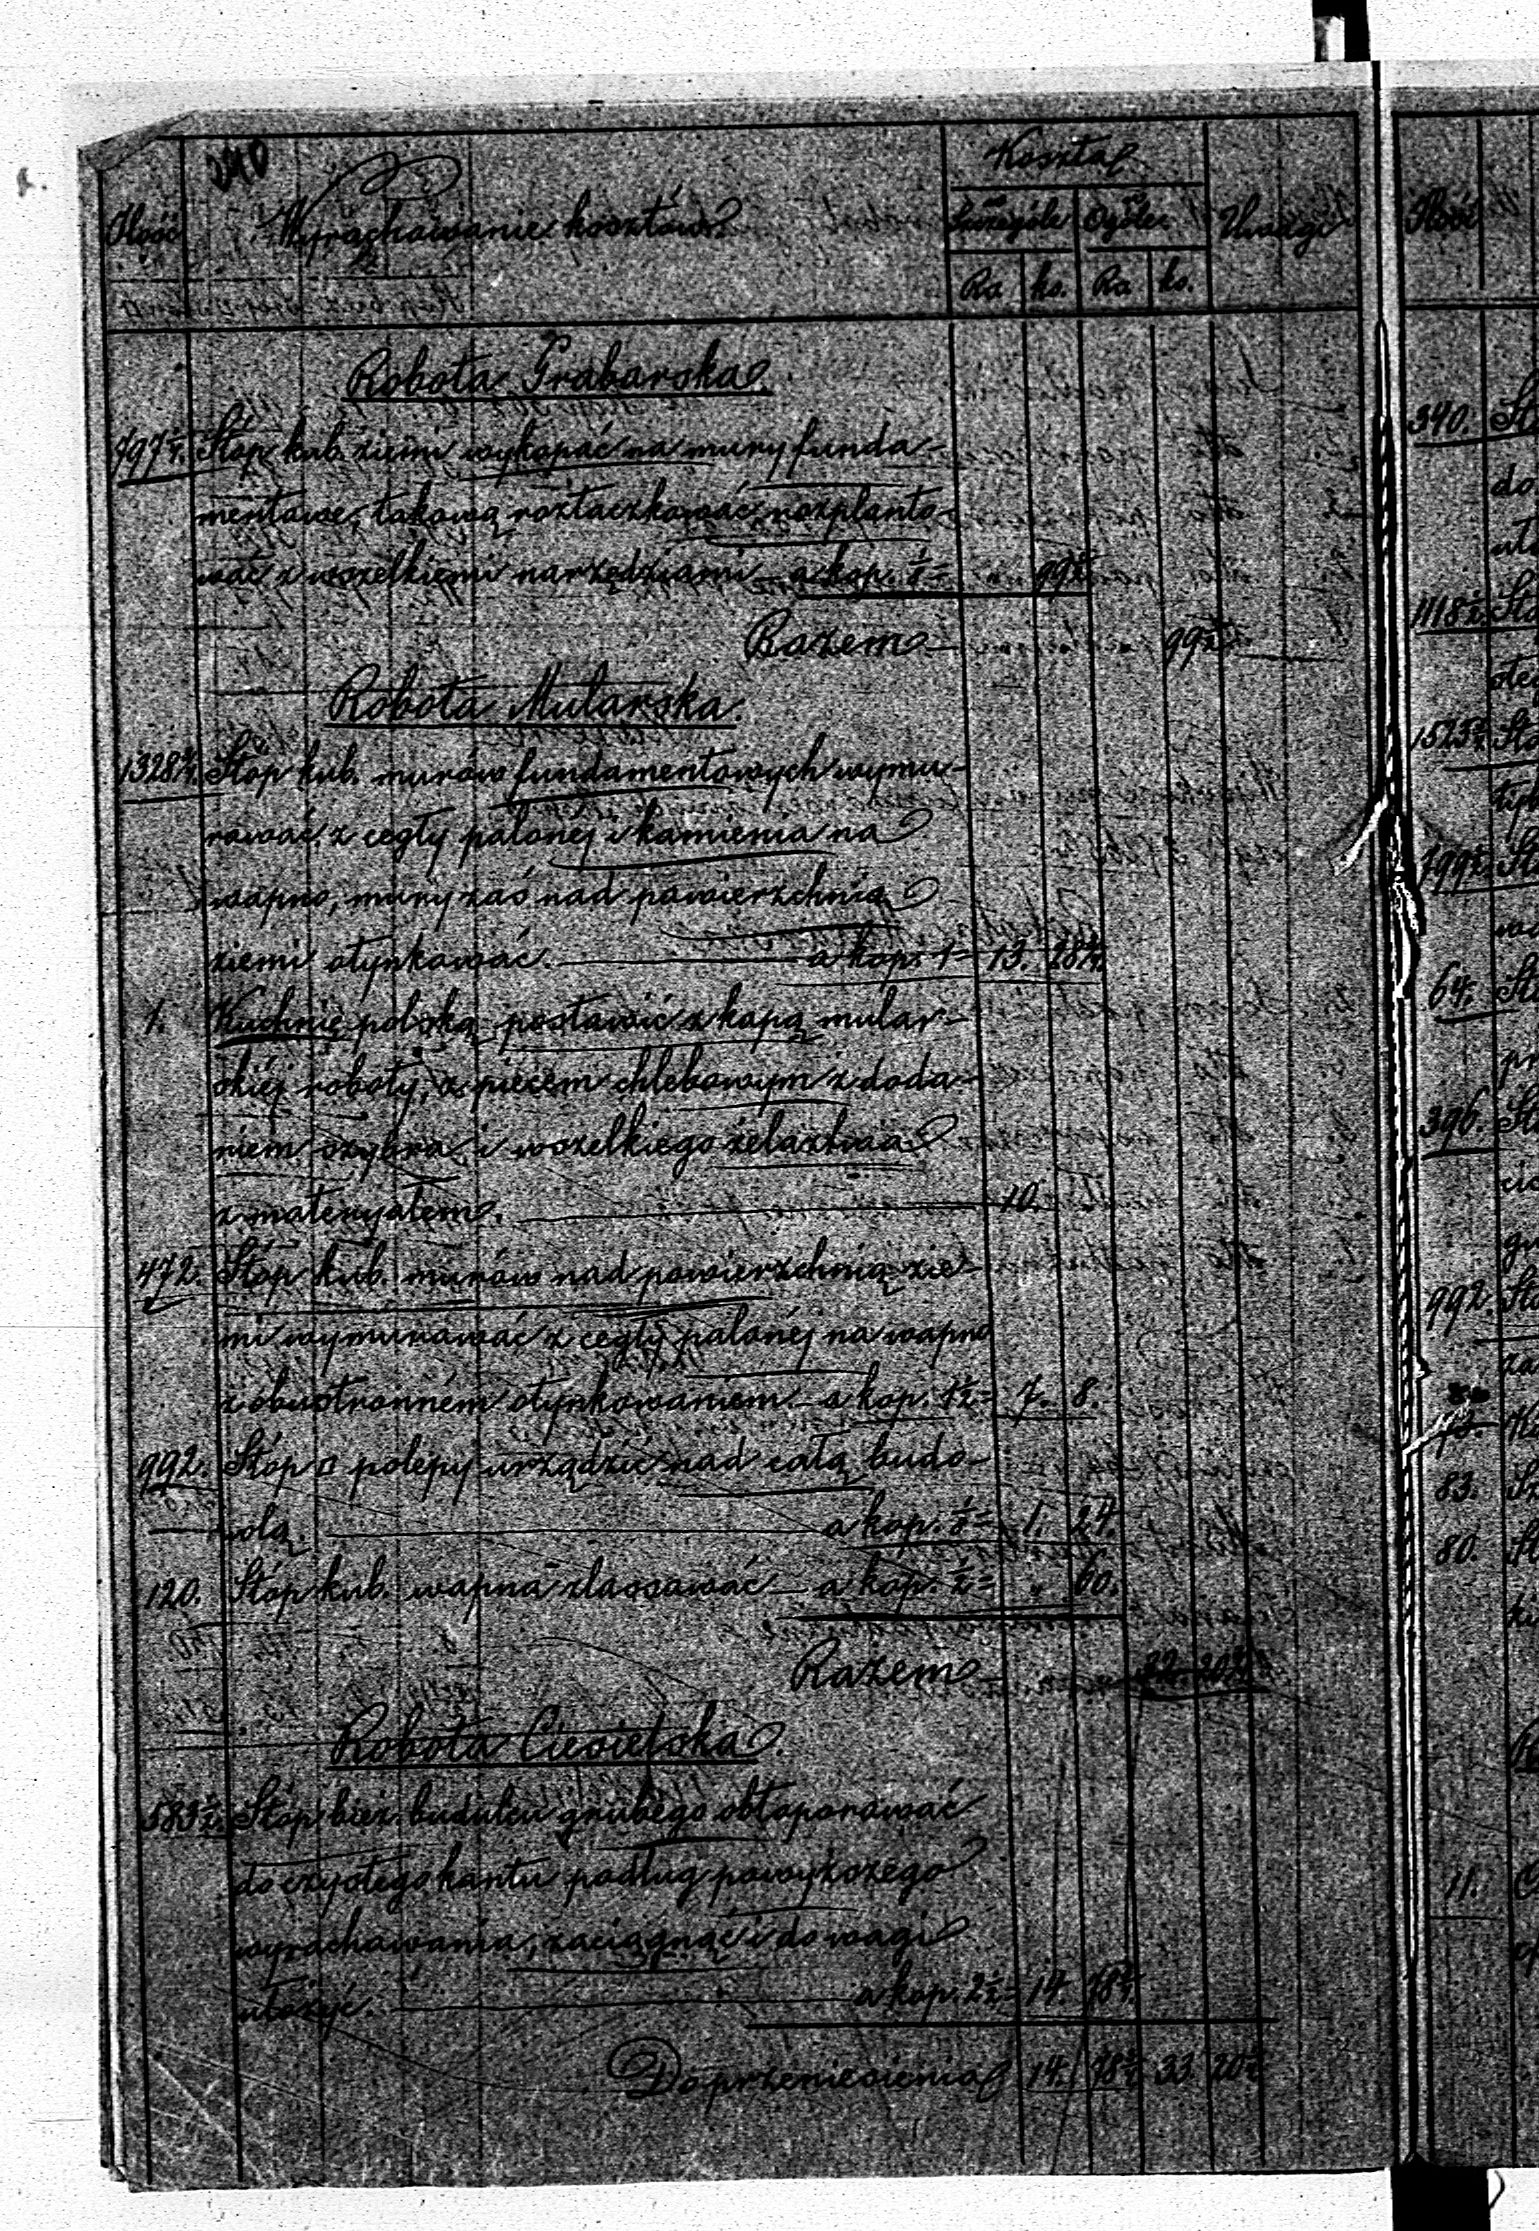 240
Koszta
Ilość Wyrachowanie kosztów w Szczególe w Ogóle Uwagi Ilość
Rs ko. Rs ko.
Robota Grabarska
797½. Stóp kub. ziemi wykopać na mury funda-
mentowe, takową roztaczkować, rozplanto-
wać z wszelkiemi narzędziami a kop. ⅛= 99½
Razem 99½
Robota Mularska.
1328¾. Stóp kub. murów fundamentowych wymu-
rować z cegły palonéj i kamienia na
wapno, mury zaś nad powierzchnią
ziemi otynkować. a kop. 1= 13. 28¾
1. Kuchnię polską postawić z kapą mular-
skiéj roboty, z piecem chlebowym z doda-
niem szybra i wszelkiego żelaztwa
z materyałem. 10.
472. Stóp kub. murów nad powierzchnią zie-
mi wymurować z cegły palonéj na wapno
z obustronném otynkowaniem a kop. 1½= 7. 8.
992. Stóp □ polepy urządzić nad całą budo-
wlą. a kop. ⅛= 1. 24.
120. Stóp kub. wapna zlasować a kop. ½= " 60.
Razem 32. 20¾
Robota Ciesielska.
583½. Stóp bież. budulcu grubego obtoporować
do czystego kantu podług powyższego
wyrachowania, zaciągnąć i do wagi
ułożyć. a kop. 2½= 14. 78¾
Do przeniesienia 14. 78¾ 33 20¼
340.
1118½.
1523¾.
799½.
64.
396.
992.
83.
80.
11.